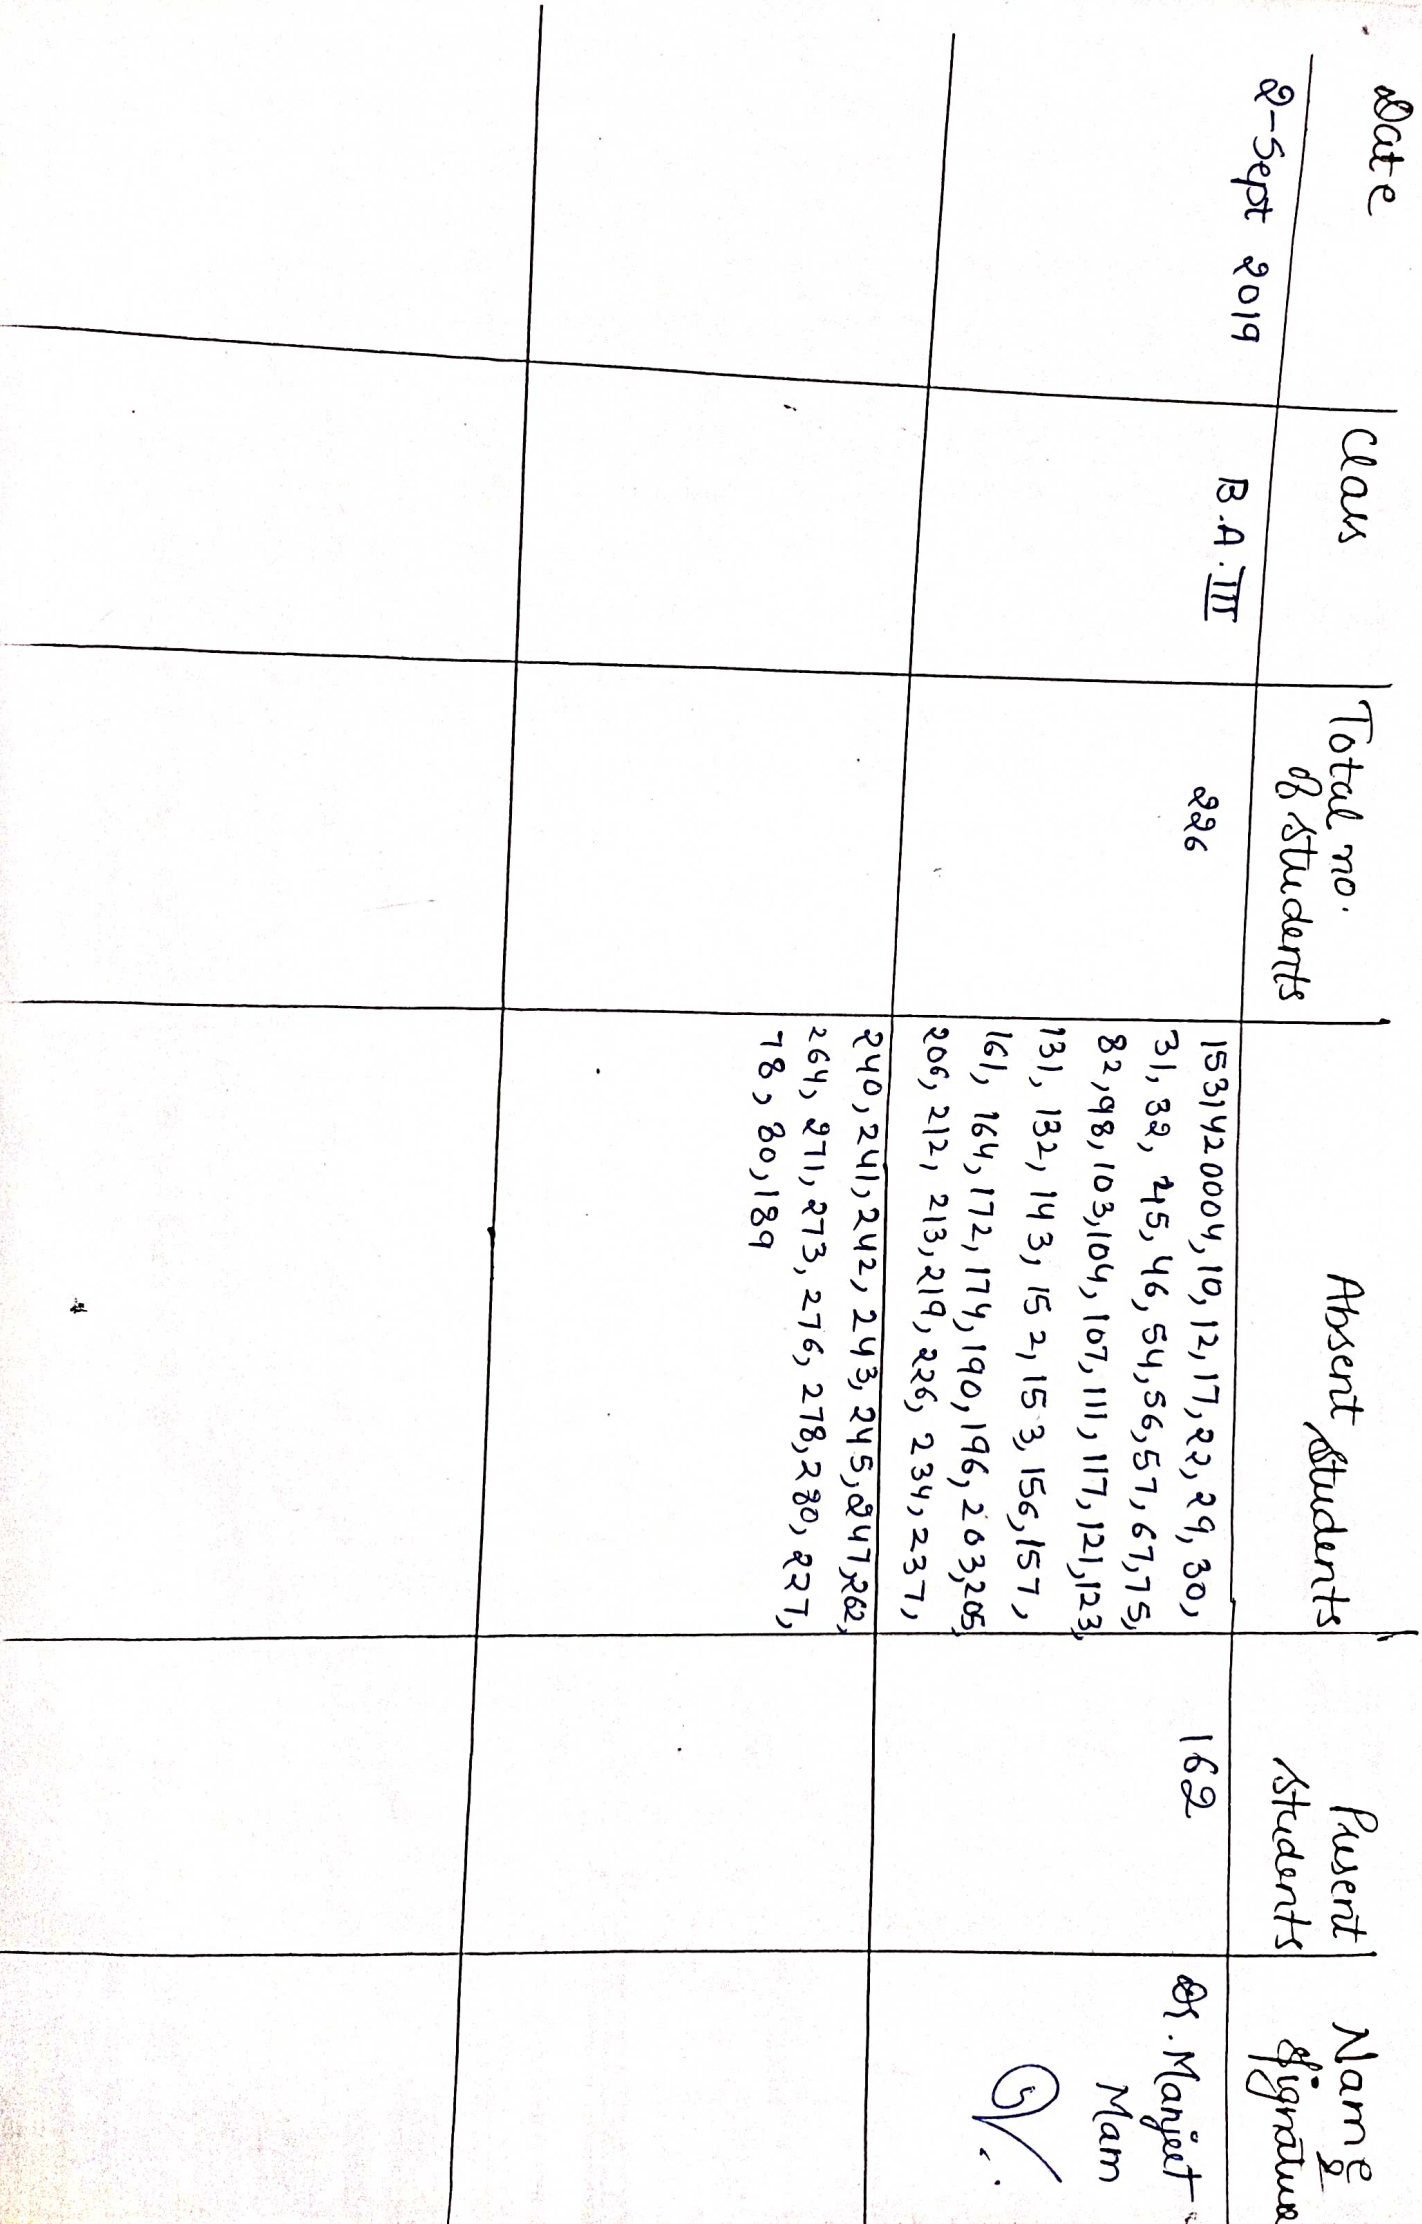 Date
Class
Total no.
of students
Absent students
Present
students
Name &
signature
2-Sept 2019
B.A. III
226
1531420004, 10, 12, 17, 22, 29, 30,
31, 32, 45, 46, 54, 56, 57, 67, 75,
82, 98, 103, 104, 107, 111, 117, 121, 123,
131, 132, 143, 152, 153, 156, 157,
161, 164, 172, 174, 190, 196, 203, 205,
206, 212, 213, 219, 226, 234, 237,
240, 241, 242, 243, 245, 247, 262,
264, 271, 273, 276, 278, 280, 227,
78, 80, 189
162
Dr. Manjeet
Mam